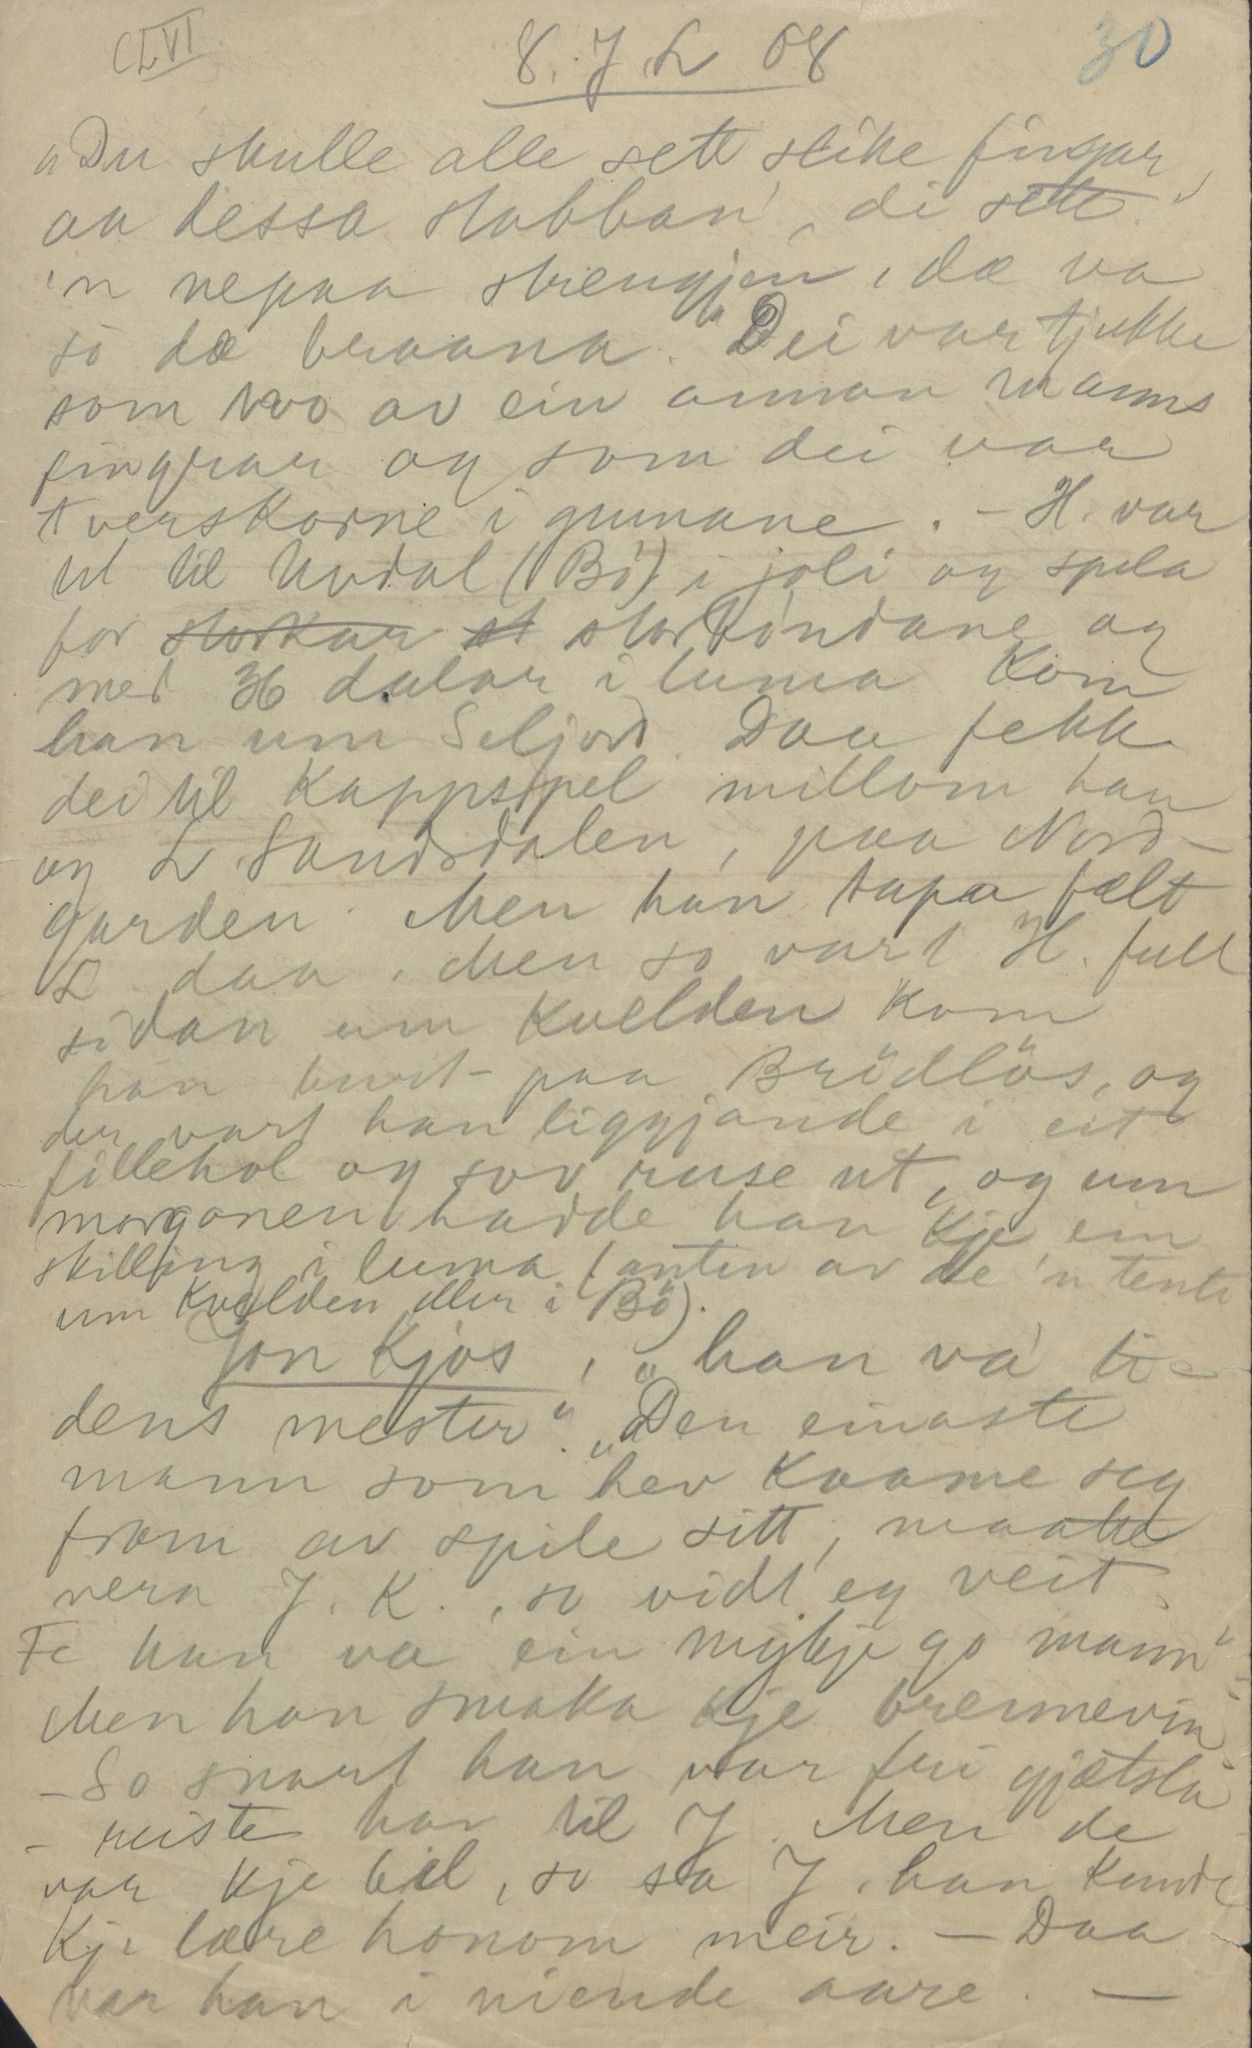 CLVI
8. J. L 08
30
"Du skulle alle sett slike fingar,
aa dessa stabban', di sette
'n nepaa strengjen, dæ va
so dæ braana." Dei var tjukke
som tvo av ein annan manns
fingrar og som dei var
tverskorne i gumane. - H. var
ut til Uvdal (Bö) i joli og spela
for storkar st storböndane og
med 36 dalar i luma kom
han um Seljord. Daa fekk
dei til Kappspel millom han
og L. Sandsdalen, paa Nord-
garden. Men han tapa fælt
L daa. Men so vart H. full
sidan um Kvelden kom
han burt paa Brödlös, og
der vart han liggjande i eit
fillehol og sov ruse ut, og um
morgonen hadde han kje ein
skilling i luma (anten av de 'n tente
um Kvelden eller i Bö).
Jon Kjos, "han va ti-
dens mester". "Den einaste
mann som hev Kaame seg
fram av spile sitt, maatte
vera J. K., so vidt eg veit.
Fe han va ein mykje go mann"
Men han smaka kje brennevin.
- So snart han var fri gjætsla
- reiste han til J. Men de
var kje bil, so sa J. han kunde
kje lære honom meir. - Daa
var han i niende aare. -